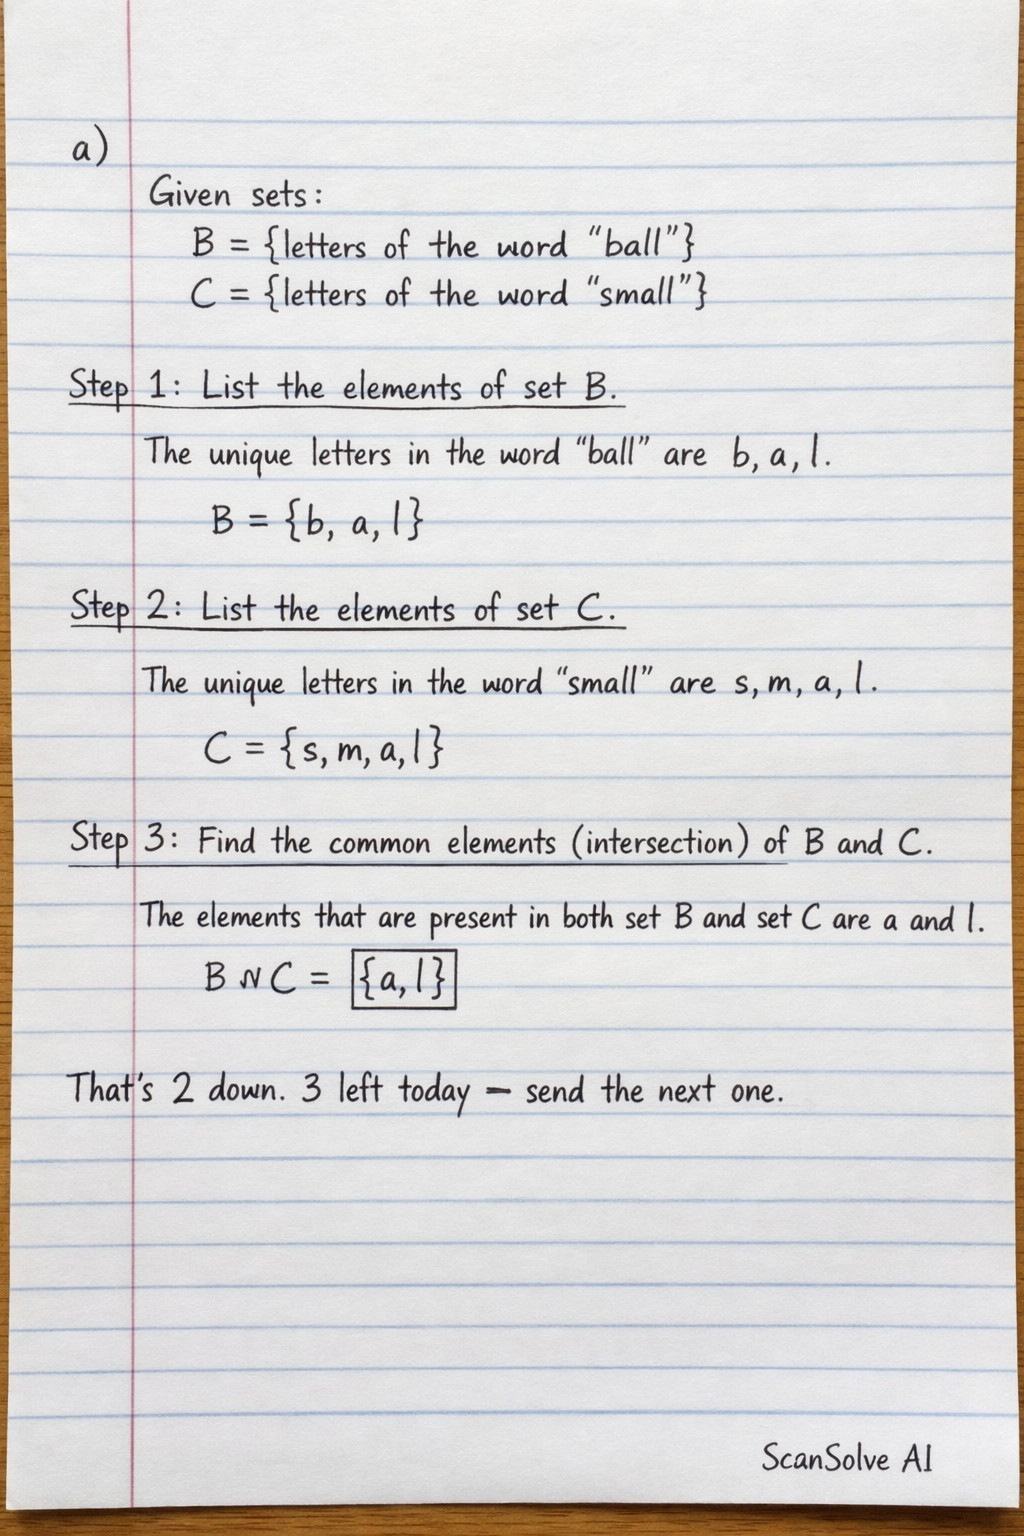 a)
Given sets:
B = {letters of the word “ball”}
C = {letters of the word “small”}
Step 1: List the elements of set B.
The unique letters in the word “ball” are b, a, l.
B = {b, a, l}
Step 2: List the elements of set C.
The unique letters in the word “small” are s, m, a, l.
C = {s, m, a, l}
Step 3: Find the common elements (intersection) of B and C.
The elements that are present in both set B and set C are a and l.
B ∩ C = {a, l}
That's 2 down. 3 left today – send the next one.
ScanSolve AI